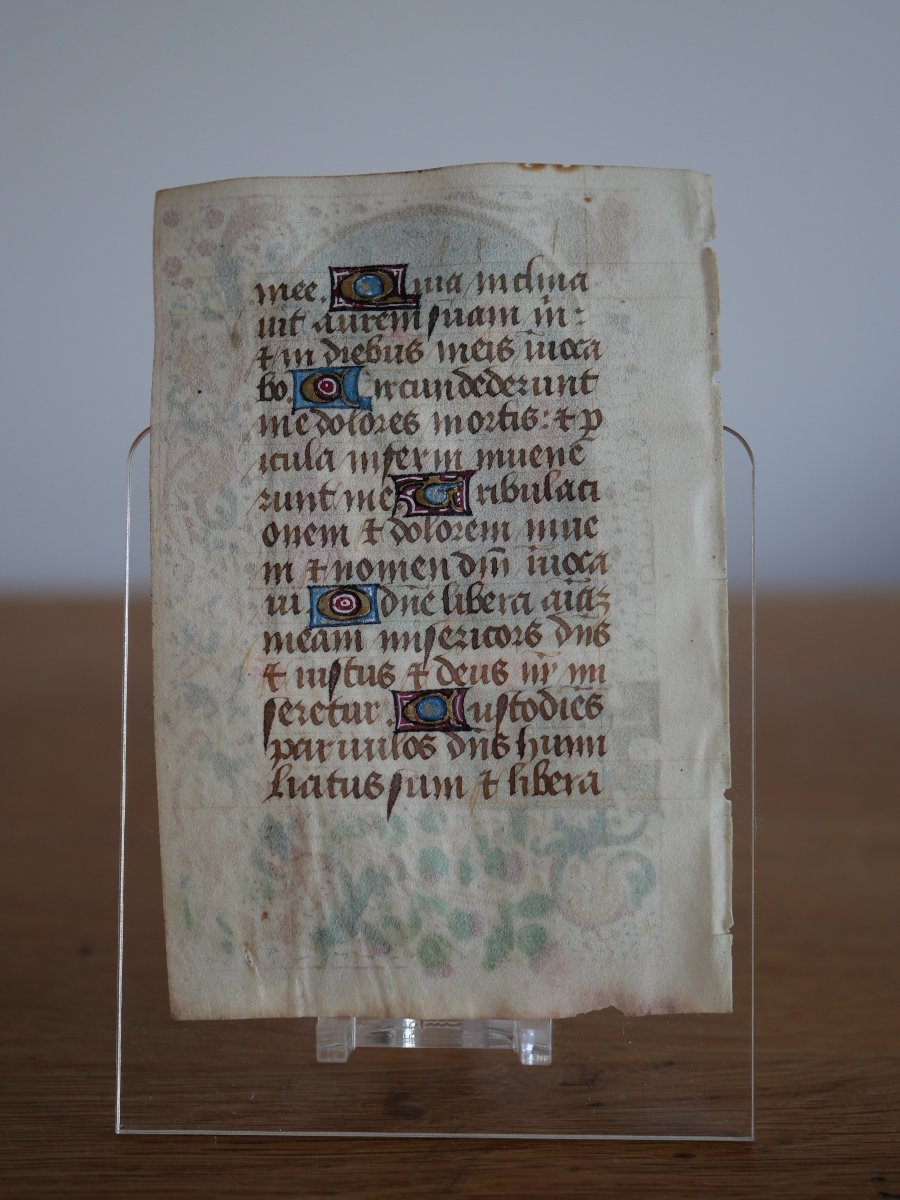 mee. Quia inclina
uit aurem suam m̄:
⁊ in diebus meis īuoca
bo. Circundederunt
me dolores mortis: ⁊ ꝑ
icula inferni inuene
runt me Tribulaci
onem ⁊ dolorem inue
ni ⁊ nomen dn̄i īuoca
ui. O dn̄e libera aīaꝫ
meam misericors dn̄s
⁊ iustus ⁊ deus nr̄ mi
seretur. Custodiēs
paruulos dn̄s humi
liatus sum ⁊ libera